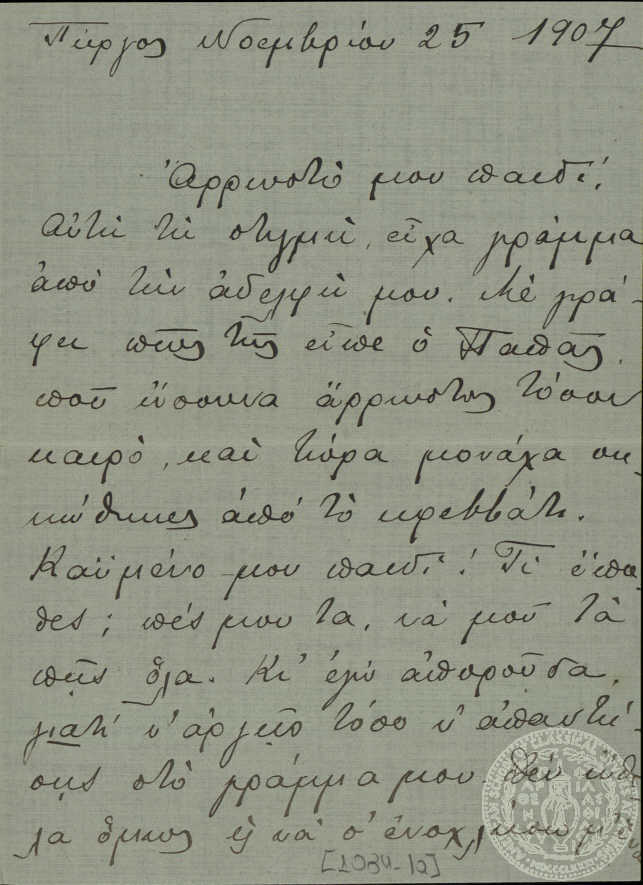 Πύργος Νοεμβρίου 25 1907
Ἄρρωστό μου παιδί!
Αὐτὴ τὴ στιγμὴ, εἶχα γράμμα
ἀπὸ τὴν ἀδελφή μου. Μὲ γρά-
φει πῶς τῆς εἶπε ὁ Παπᾶς,
ποῦ ἤσουνα ἄρρωστος τόσον
καιρὸ, καὶ τώρα μονάχα ση-
κώθηκες ἀπὸ τὸ κρεββάτι.
Καϋμένο μου παιδί! Τί ἔπα
θες; πές μου τα, νὰ μοῦ τὰ
πῇς ὅλα. Κι' ἐγὼ ἀποροῦσα,
γιατί ν' ἀργῇς τόσο ν' ἀπαντή-
σῃς στὸ γράμμα μου. δὲν ἤθε
λα ὅμως νὰ σ' ἐνοχλήσω μ'
[1034-12]